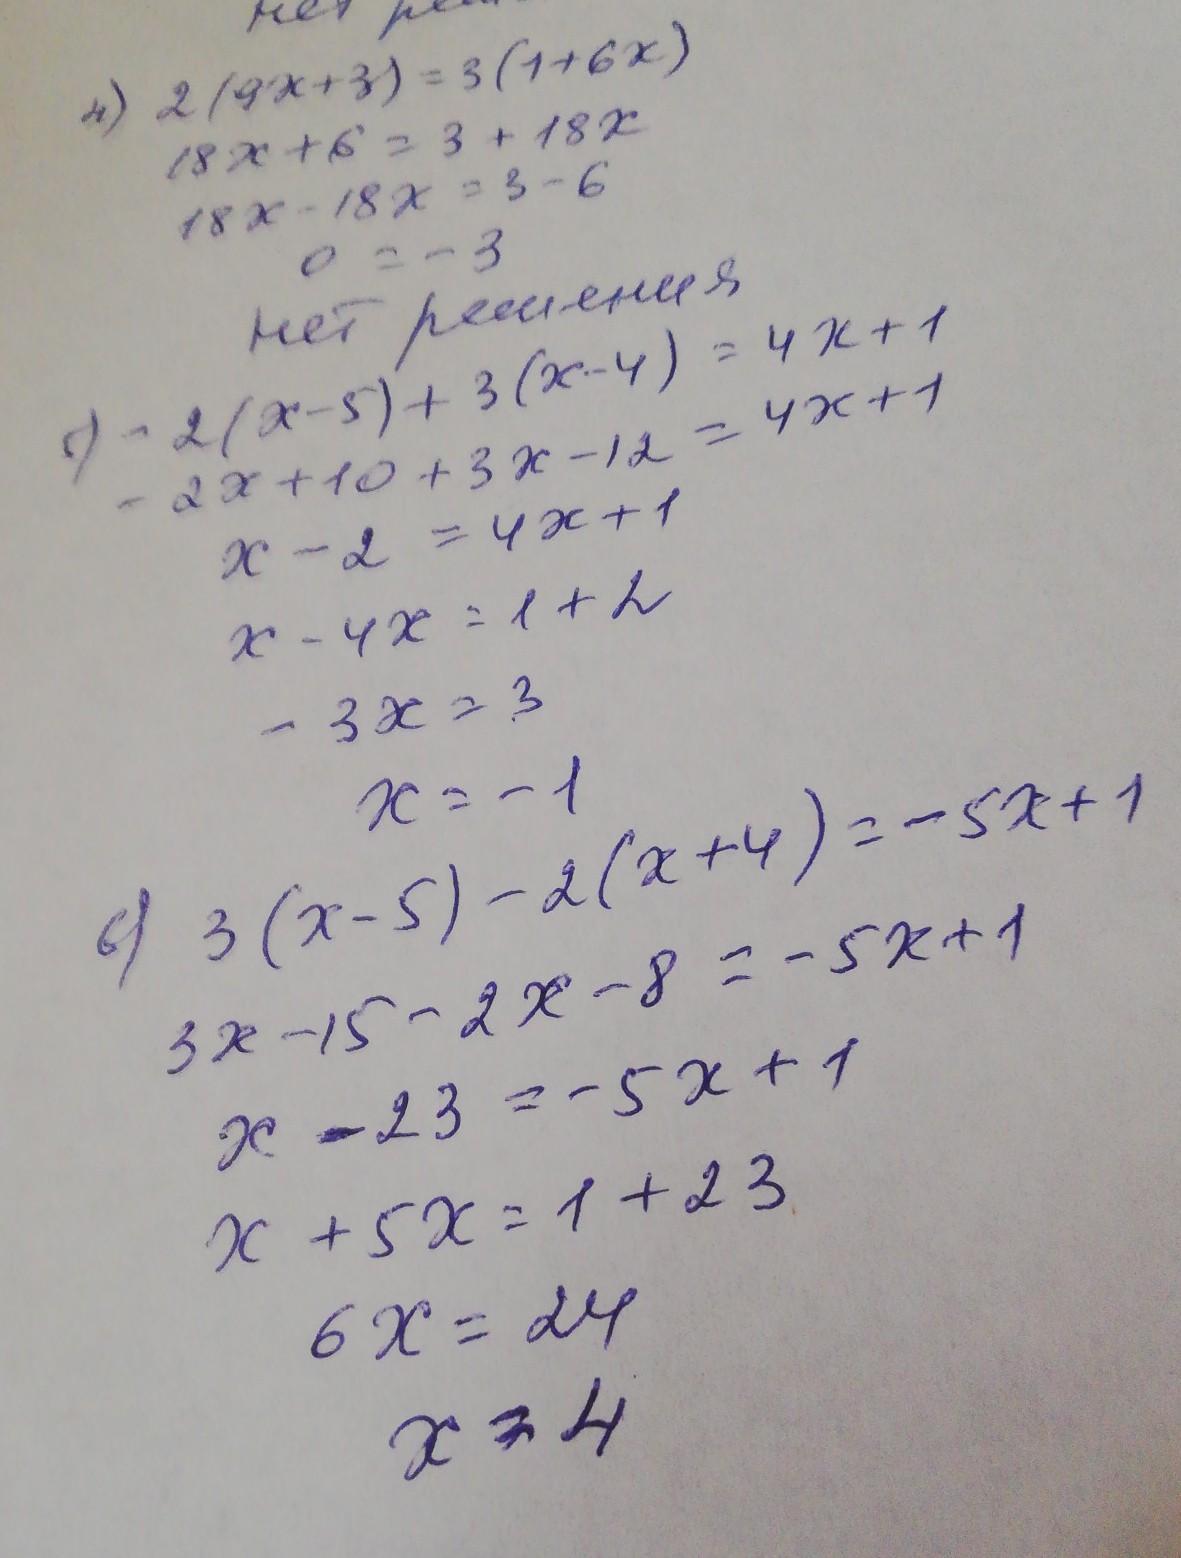 нет
4) 2(9x+3) = 3(1+6x)
18x+6 = 3+18x
18x-18x = 3-6
0 = -3
нет решения
5) -2(x-5)+3(x-4) = 4x+1
-2x+10+3x-12 = 4x+1
x-2 = 4x+1
x-4x = 1+2
-3x = 3
x = -1
6) 3(x-5)-2(x+4) = -5x+1
3x-15-2x-8 = -5x+1
x-23 = -5x+1
x+5x = 1+23
6x = 24
x = 4